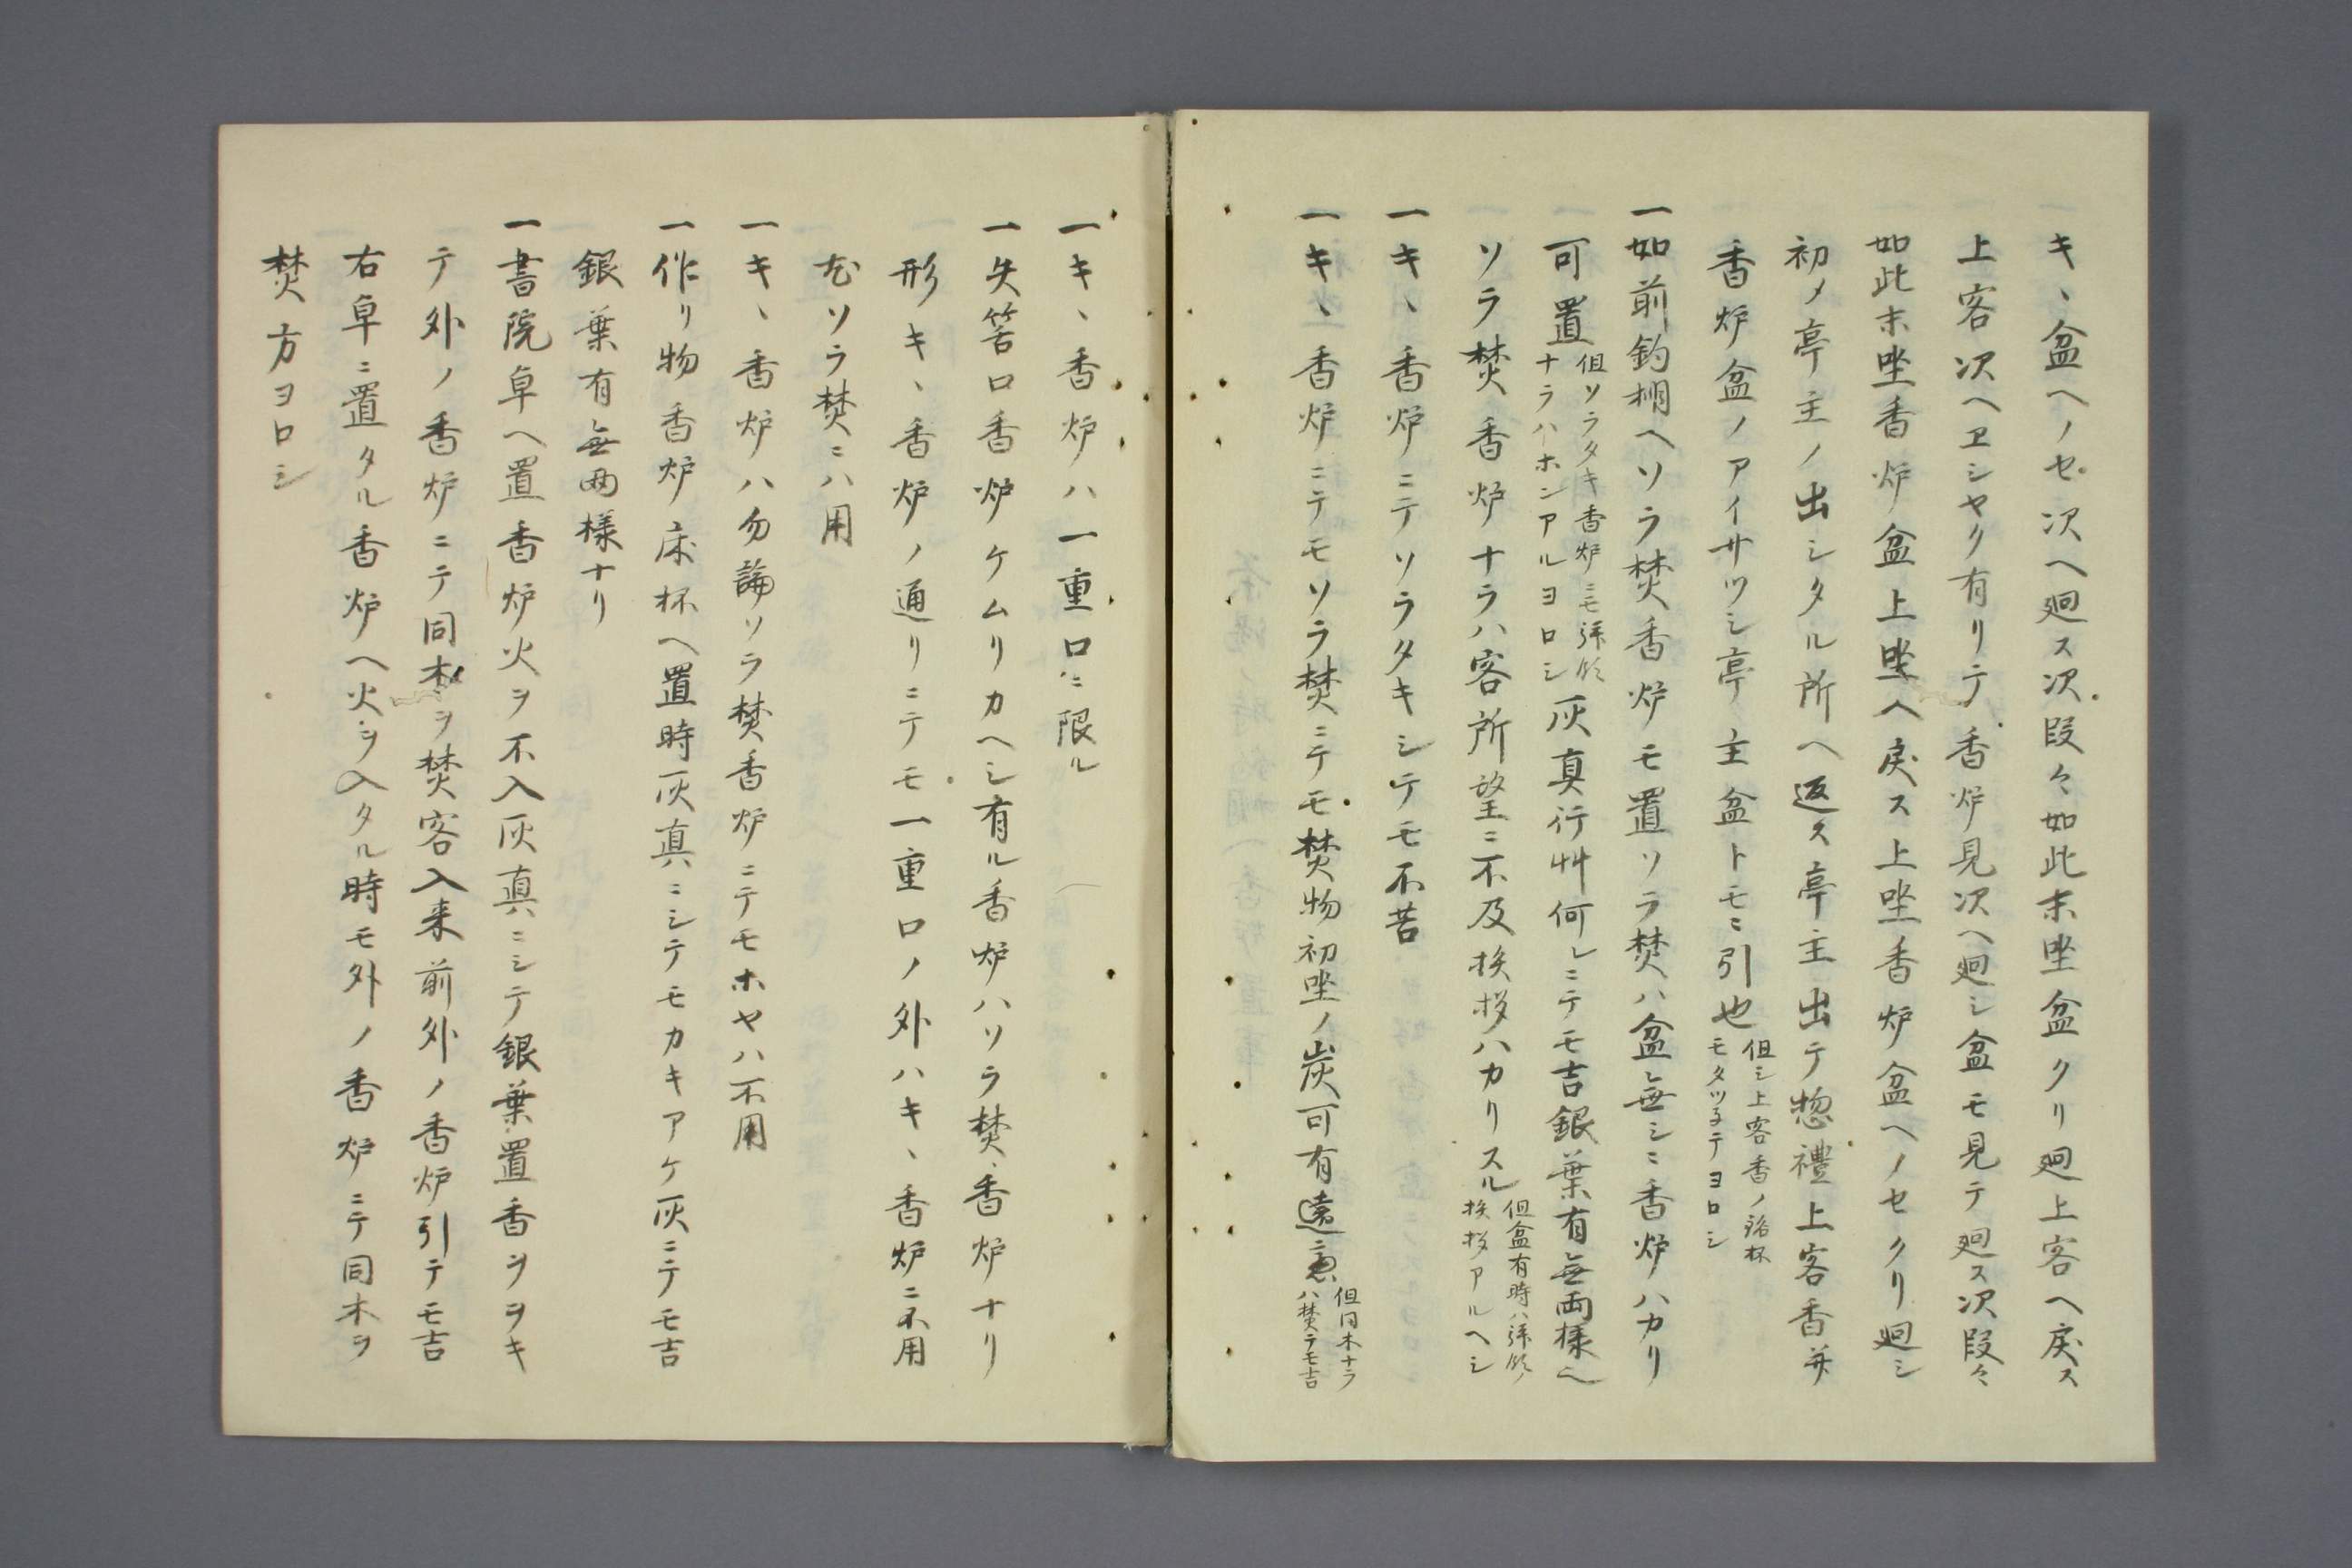 キヽ盆ヘノセ次ヘ廻ス次段々如此末坐盆クリ廻上客ヘ戻ス
上客次ヘヱシヤク有リテ香炉見次ヘ廻シ盆モ見テ廻ス次段々
如此末坐香炉盆上坐ヘ戻ス上坐香炉盆ヘノセクリ廻シ
初メ亭主ノ出シタル所ヘ返ス亭主出テ惣禮上客香并
香炉盆ノアイサツシ亭主盆トモニ引也但シ上客香ノ銘杯
モタツ子テヨロシ
一如前釣棚ヘソラ焚香炉モ置ソラ焚ハ盆無シニ香炉ハカリ
可置但ソラタキ香炉ニモ拝領
ナラハホンアルヨロシ灰真行艸何レニテモ吉銀葉有無両様ヘ
ソラ焚香炉ナラハ客所望ニ不及挨拶ハカリスル但盆有時ハ拝領ノ
挨拶アルヘシ
一キヽ香炉ニテソラタキシテモ不苦
一キヽ香炉ニテモソラ焚ニテモ焚物初坐ノ炭可有遠慮但同木ナラ
ハ焚テモ吉
一キヽ香炉ハ一重口ニ限ル
一失筈口香炉ケムリカヘシ有ル香炉ハソラ焚香炉ナリ
形キヽ香炉ノ通リニテモ一重口ノ外ハキヽ香炉ニ不用
尤ソラ焚ニハ用
一キヽ香炉ハ勿論ソラ焚香炉ニテモホヤハ不用
一作リ物香炉床杯ヘ置時灰真ニシテモカキアケ灰ニテモ吉
銀葉有無両様ナリ
一書院卓ヘ置香炉火ヲ不入灰真ニシテ銀葉置香ヲヲキ
テ外ノ香炉ニテ同木ヲ焚客入来前外ノ香炉引テモ吉
右卓ニ置タル香炉ヘ火ヲ入タル時モ外ノ香炉ニテ同木ヲ
焚方ヨロシ